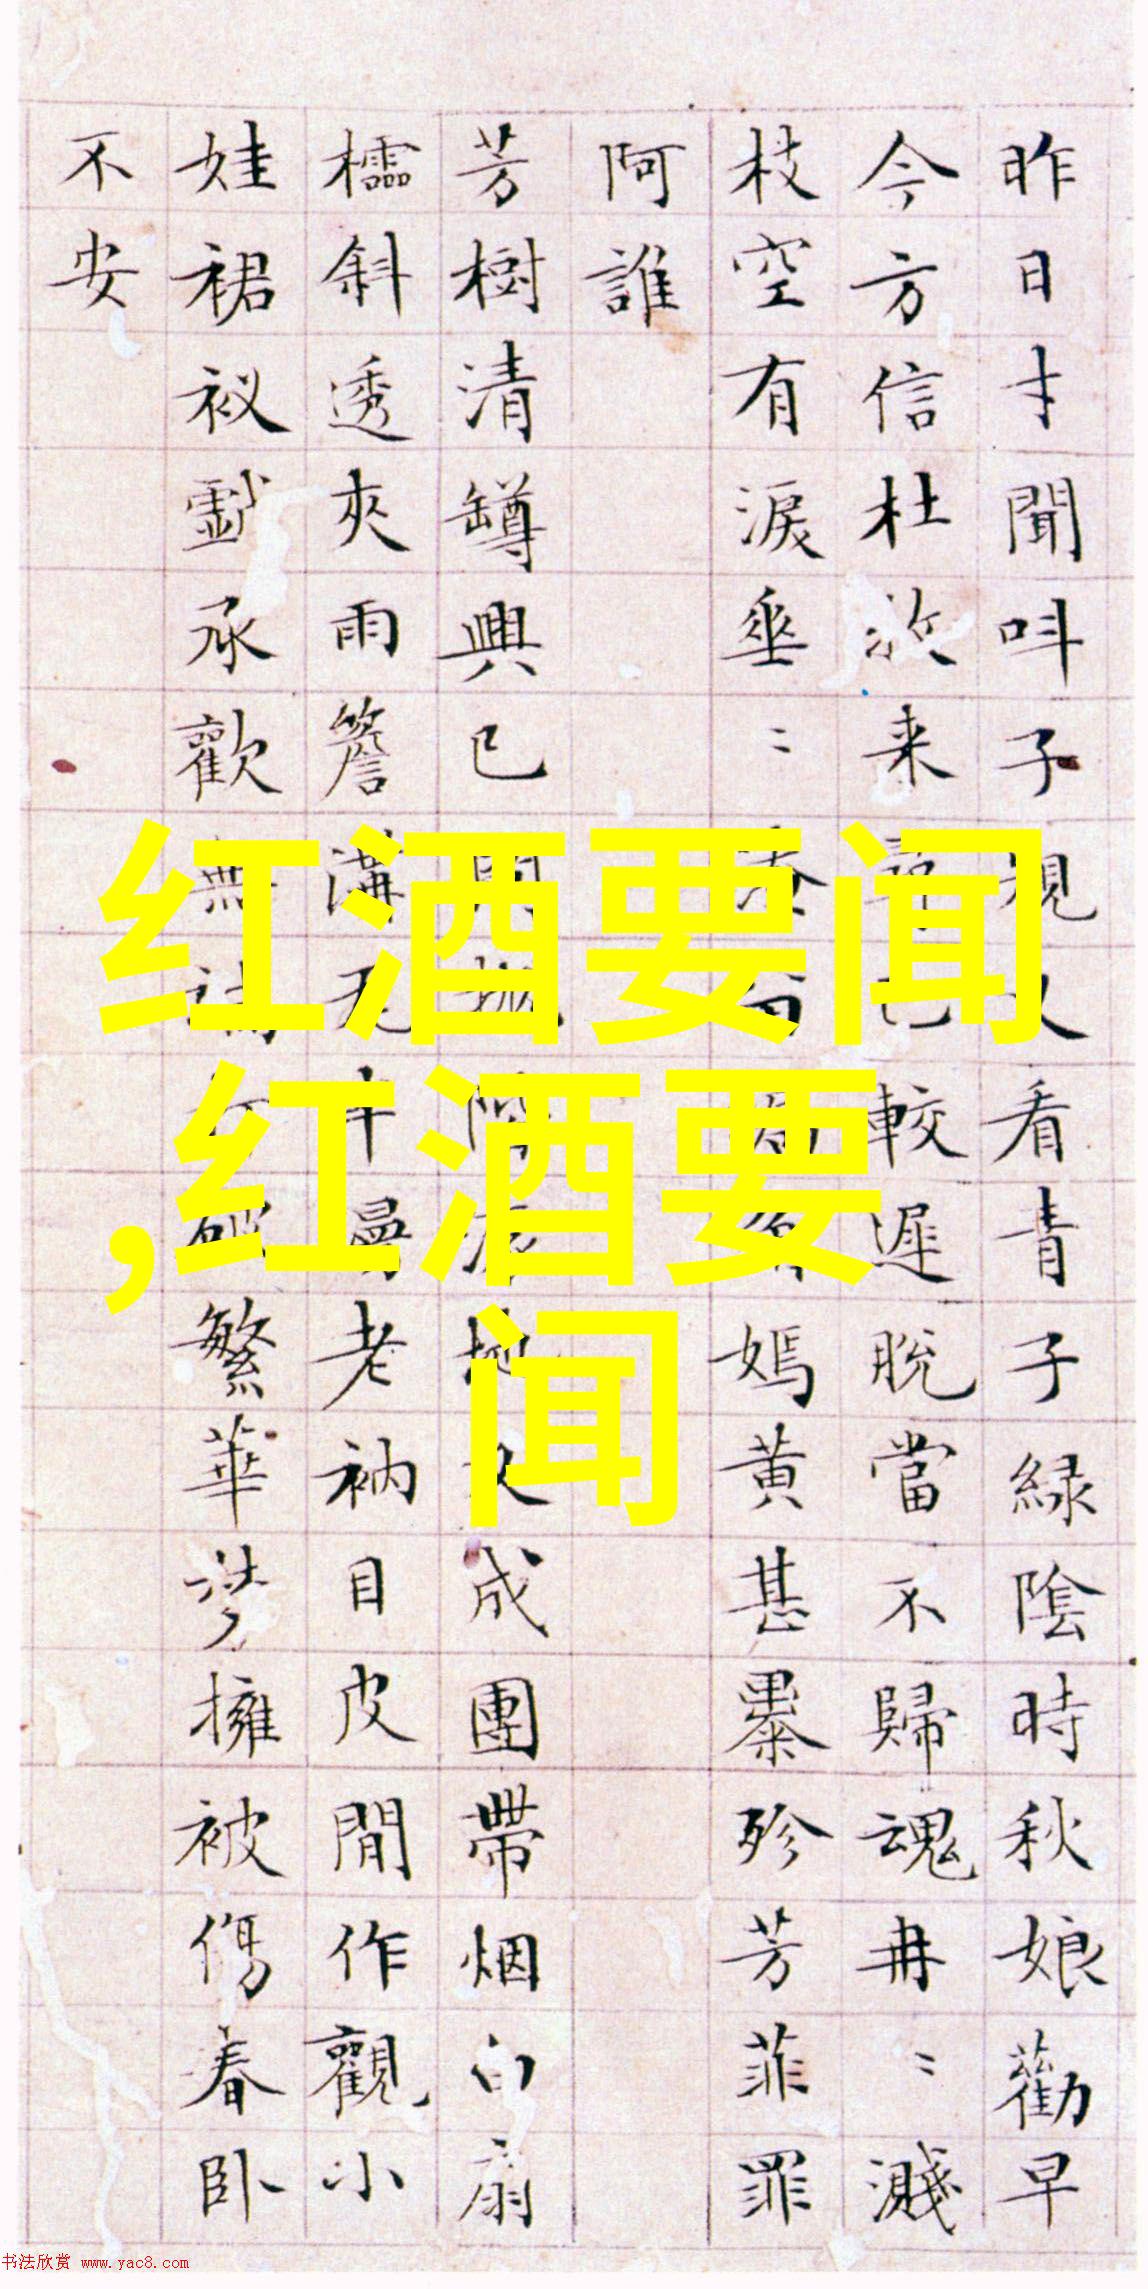 昨日才聞呌子規又看青子緑陰時秋娘勸早
今方信杜牧来尋已較遲脫當不歸魂冉〻濺
枝空有淚垂〻嫣黄甚暴殄芳菲罪
阿誰
芳樹清罇興已成團帶烟白扇
櫺斜透夾雨簷溝老衲目皮閒作觀小
娃裙衩戲承歡無繁華夢擁被傷春卧
不安
红酒要闻
,红酒要
闻
书法欣赏 www.yac8.com